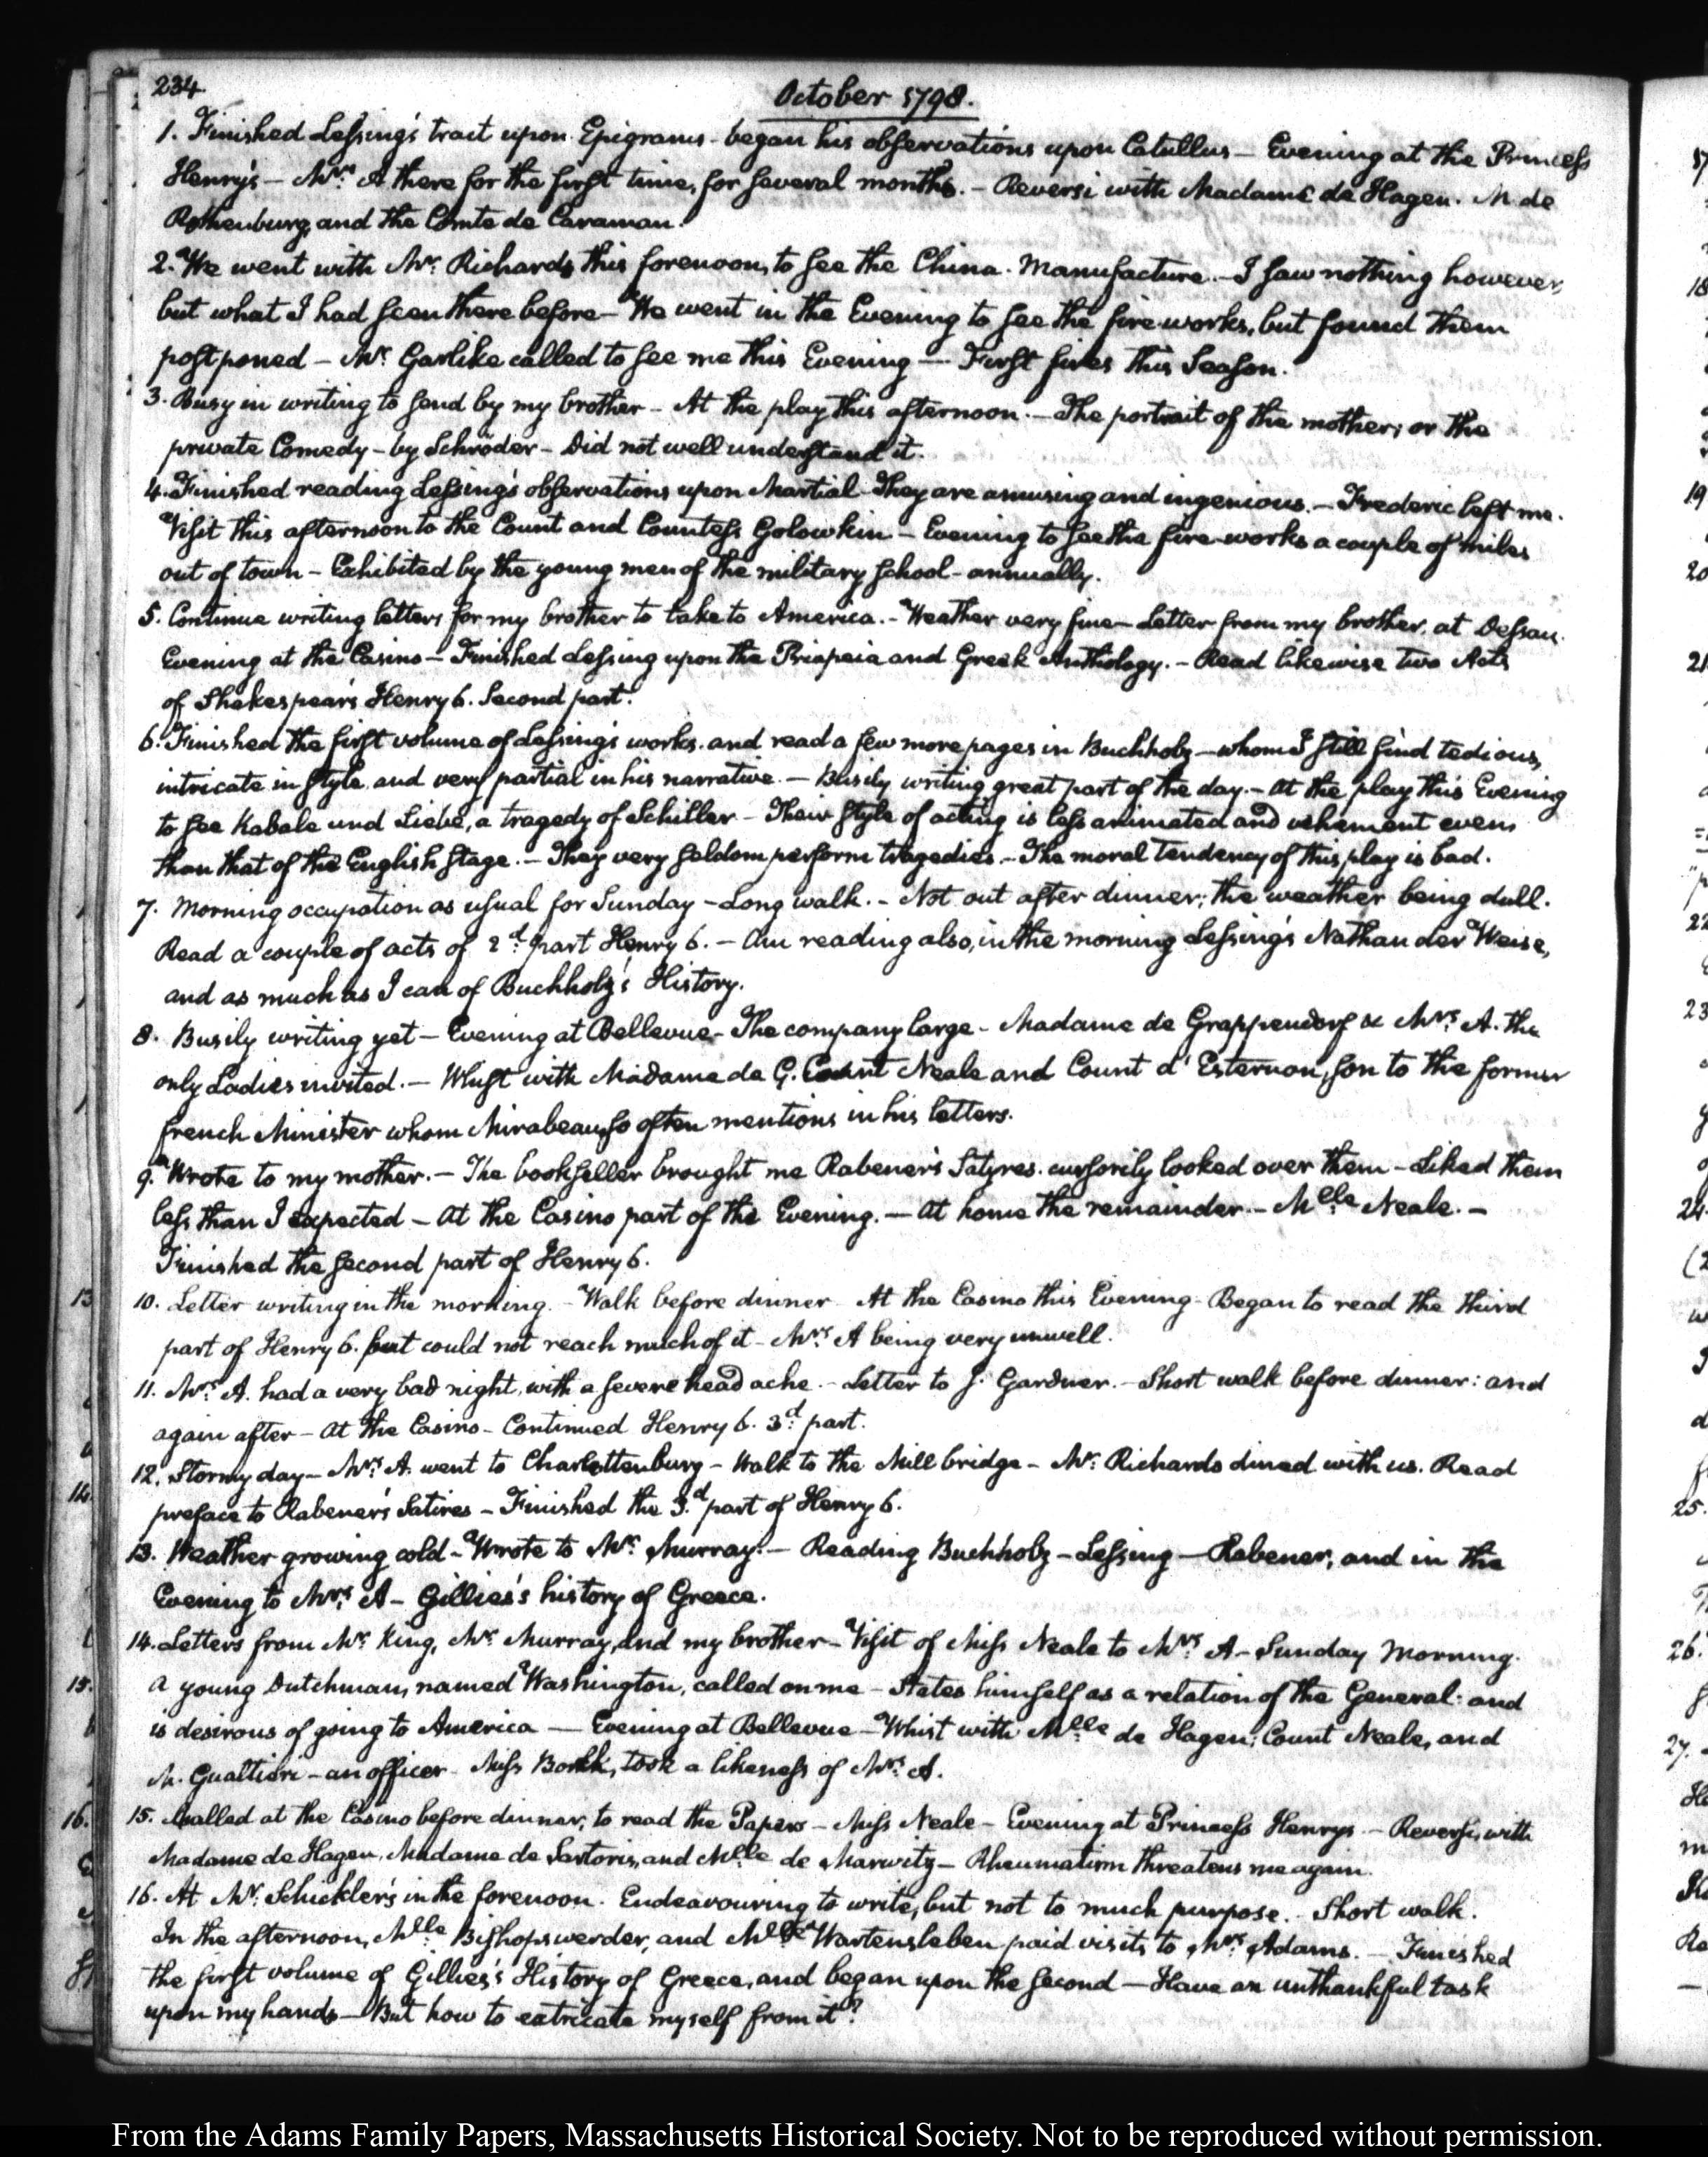 234.
October 1798.
1. Finished Lessing's tract upon Epigrams - began his observations upon Catullus — Evening at the Princess
Henry's — Mrs: A there for the first time, for several months. — Reversi with Madame de Hagen. M. de
Rothenburg, and the Comte de Caraman.
2. We went with Mr: Richards this forenoon, to see the China. Manufacture. — I saw nothing however,
but what I had seen there before — We went in the Evening to see the fire-works, but found them
postponed — Mr: Garlike called to see me this Evening — First fires this Season.
3. Busy in writing to send by my brother — At the play this afternoon. — The portrait of the mother; or the
private Comedy — by Schröder — Did not well understand it.
4. Finished reading Lessing's observations upon Martial - They are amusing and ingenious. — Frederic left me.
Visit this afternoon to the Count and Countess Golowkin — Evening to see the fire-works a couple of miles
out of town — Exhibited by the young men of the military school - annually.
5. Continue writing letters for my brother to take to America. — Weather very fine — Letter from my brother, at Dessau.
Evening at the Casino — Finished Lessing upon the Priapeia and Greek Anthology. — Read likewise two Acts
of Shakespear's Henry 6. Second part.
6. Finished the first volume of Lessing's works. and read a few more pages in Buchholz — whom I still find tedious,
intricate in style, and very partial in his narrative. — Busily writing great part of the day. — At the play this Evening
to see Kabale und Liebe, a tragedy of Schiller — Their style of acting is less animated and vehement even
than that of the English stage. — They very seldom perform tragedies. — The moral tendency of this play is bad.
7. Morning occupation as usual for Sunday — Long walk. — Not out after dinner; the weather being dull.
Read a couple of acts of 2d: part Henry 6. — Am reading also, in the morning Lessing's Nathan der Weise,
and as much as I can of Buchholz's History.
8. Busily writing yet — Evening at Bellevue — The company large — Madame de Grappendorf & Mrs: A. the
only Ladies invited. — Whist with Madame de G. Count Neale and Count d'Esternon, son to the former
french Minister whom Mirabeau so often mentions in his letters.
9. Wrote to my mother. — The bookseller brought me Rabener's Satyres. cursorily looked over them — Liked them
less than I expected — At the Casino part of the Evening. — At home the remainder. — Mlle: Neale. —
Finished the second part of Henry 6.
10. Letter writing in the morning. — Walk before dinner — At the Casino this Evening — Began to read the third
part of Henry 6. but could not reach much of it — Mrs: A being very unwell.
11. Mrs: A. had a very bad night, with a severe head ache. — Letter to J. Gardner. — Short walk before dinner: and
again after — At the Casino — Continued Henry 6. 3d: part.
12. Stormy day — Mrs: A. went to Charlottenburg — Walk to the Mill bridge — Mr: Richards dined with us. Read
preface to Rabener's Satires — Finished the 3d: part of Henry 6.
13. Weather growing cold — Wrote to Mr: Murray. — Reading Buchholz — Lessing — Rabener; and in the
Evening to Mrs: A — Gillies's history of Greece.
14. Letters from Mr: King, Mr: Murray, and my brother — Visit of Miss Neale to Mrs: A — Sunday Morning.
A young Dutchman, named Washington, called on me — States himself as a relation of the General: and
is desirous of going to America — Evening at Bellevue — Whist with Mlle: de Hagen, Count Neale, and
M. Gualtieri — an officer — Miss took a likeness of Mrs: A.
15. Called at the Casino before dinner, to read the Papers — Miss Neale — Evening at Princess Henrys — Reversi, with
Madame de Hagen, Madame de Sartoris, and Mlle: de Marwitz — Rheumatism threatens me again.
16. At Mr: Schickler's in the forenoon. Endeavouring to write, but not to much purpose. — Short walk.
In the afternoon, Mlle: Bishopswerder, and Mlle: Wartensleben paid visits to Mrs: Adams. — Finished
the first volume of Gillies's History of Greece, and began upon the second — Have an unthankful task
upon my hands — But how to extricate myself from it?
From the Adams Family Papers, Massachusetts Historical Society. Not to be reproduced without permission.